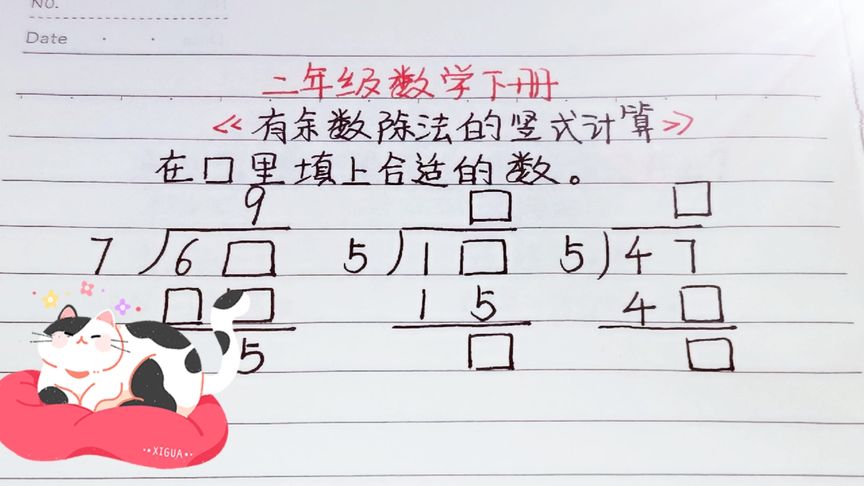 No.
Date
二年级数学下册
《有余数除法的竖式计算》
在口里填上合适的数。
9 □ □
7)6□ 5)1□ 5)47
□□ 15 4□
5 □ □
XIGUA